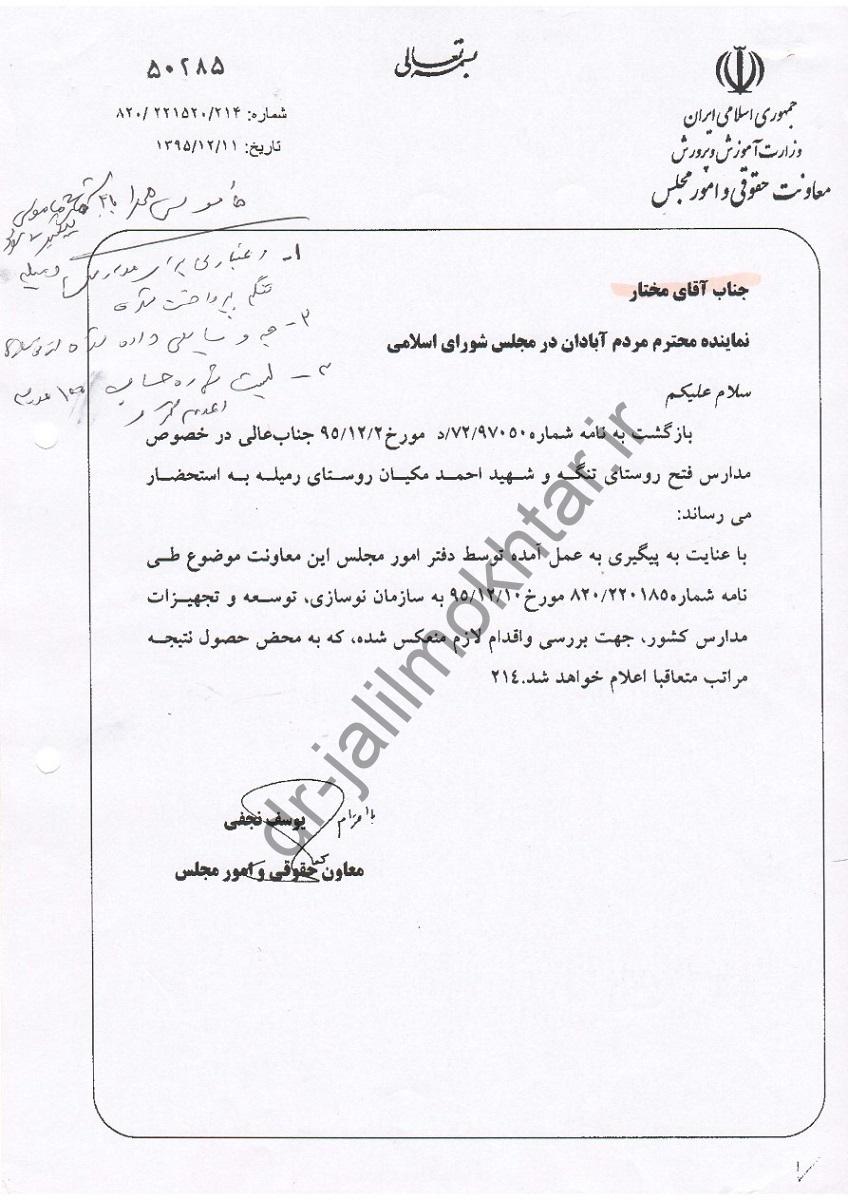 بسمه تعالی
جمهوری اسلامی ایران
وزارت آموزش و پرورش
معاونت حقوقی و امور مجلس
۵۰۲۸۵
شماره: ۸۲۰/ ۲۲۱۵۲۰/۲۱۴
تاریخ: ۱۳۹۵/۱۲/۱۱
۱- اعتباری برای مدارس
پرداخت شده
۲- چه وسایلی داده شده
۳- لیست شماره حساب ۱۰۰
جناب آقای مختار
نماینده محترم مردم آبادان در مجلس شورای اسلامی
سلام علیکم
بازگشت به نامه شماره۷۲/۹۷۰۵۰/د مورخ۹۵/۱۲/۲ جناب‌عالی در خصوص
مدارس فتح روستای تنگه و شهید احمد مکیان روستای رمیله به استحضار
می رساند:
با عنایت به پیگیری به عمل آمده توسط دفتر امور مجلس این معاونت موضوع طی
نامه شماره۸۲۰/۲۲۰۱۸۵ مورخ۹۵/۱۲/۱۰ به سازمان نوسازی، توسعه و تجهیزات
مدارس کشور، جهت بررسی واقدام لازم منعکس شده، که به محض حصول نتیجه
مراتب متعاقبا اعلام خواهد شد.۲۱٤
با احترام
یوسف نجفی
معاون حقوقی و امور مجلس
dr-jalilmokhtar.ir
۱